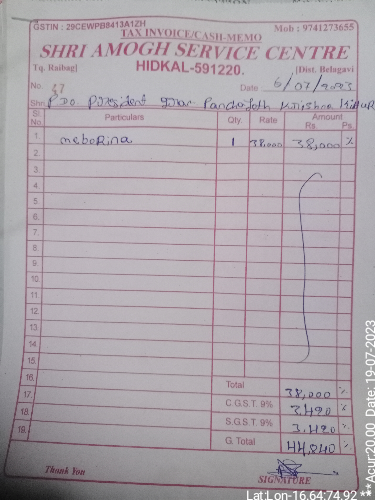 GSTIN : 29CEWPB8413A1ZH
Mob : 9741273655
TAX INVOICE/CASH-MEMO
SHRI AMOGH SERVICE CENTRE
Tq. Raibag] HIDKAL-591220. [Dist. Belagavi
No. 57 Date 6/07/2023
Shri PDO President
Sl. No. Particulars Qty. Rate Amount Rs. Ps.
1. meborina 1 38,000 38,000 %
2.
3.
4.
5.
6.
7.
8.
9.
10.
11.
12.
13.
14.
15.
16. Total 38,000 %
17. C.G.S.T. 9% 3,420 %
18. S.G.S.T. 9% 3,420 %
19. G. Total 44,840 %
Thank You SIGNATURE
Lat:Lon-16.64:74.92 ** Acur:20.00 Date: 19-07-2023